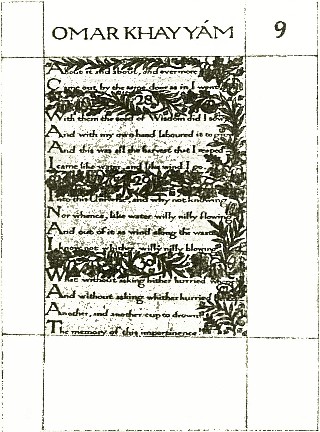 OMAR KHAYYÁM 9
About it and about, and evermore
Came out by the same door as in I went.
28
With them the seed of Wisdom did I sow,
And with my own hand laboured it to grow
And this was all the harvest that I reaped
I came like water, and like wind I go.
29
Into this Universe, and why not knowing
Nor whence, like water willy nilly flowing
And out of it as wind along the waste
I know not whither, willy nilly blowing
30
What without asking hither hurried
And without asking whither hurried
Another, and another cup to drown
The memory of this impertinence!